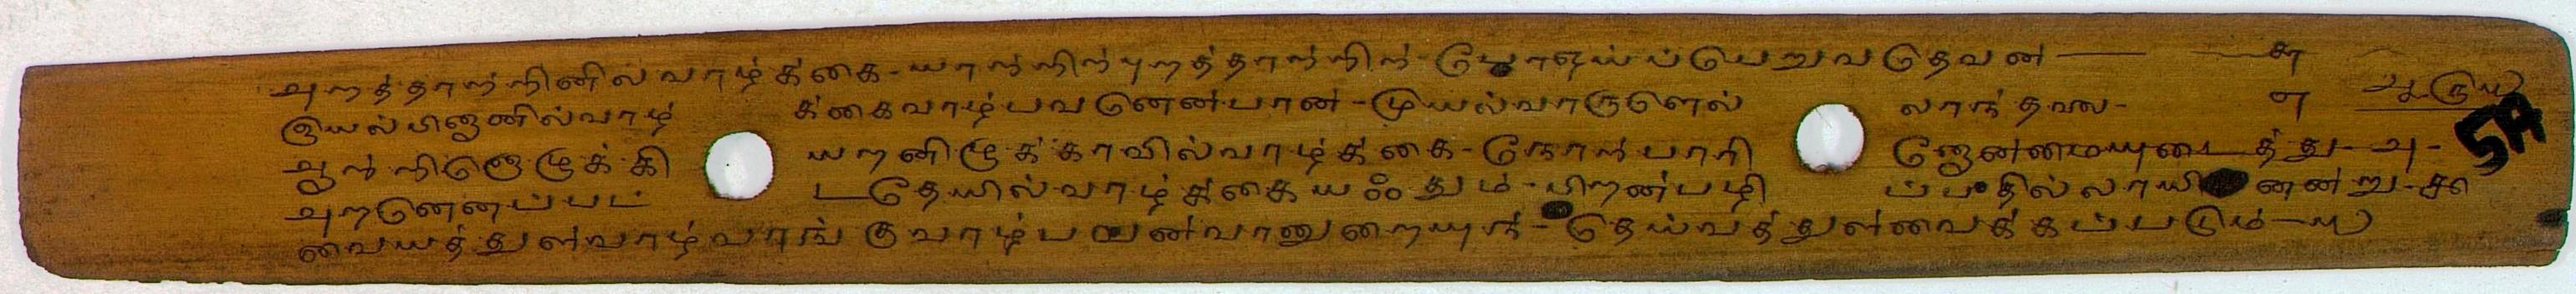 அறத்தாற்றினில்வாழ்க்கை-யாற்றிற்புறத்தாற்றிற்-போஒய்ப்பெறுவதெவன் — சு
இயல்பினானில்வாழ்க்கைவாழ்பவனென்பான்-முயல்வாருளெல்லாந்தலை- ௭ ஆ-ரு௰
ஆற்றினொழுக்கியறனிழுக்காவில்வாழ்க்கை-நோற்பாரினோன்மையுடைத்து-அ-
அறனெனப்பட்டதேயில்வாழ்க்கையஃதும்-பிறன்பழிப்பதில்லாயினன்று-௯
வையத்துள்வாழ்வாங்குவாழ்பவன்வானுறையுந்-தெய்வத்துள்வைக்கப்படும்-௰
5A